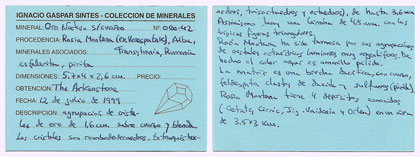 IGNACIO GASPAR SINTES - COLECCION DE MINERALES
MINERAL: Oro Nativo s/cuarzo Nº 080-42
PROCEDENCIA: Rosia Montana (ex Verespatak), Alba,
MINERALES ASOCIADOS: Transylvania, Rumania
esfalerita, pirita
DIMENSIONES: 5,1 x 4 x 2,6 cm. PRECIO:
OBTENTION: The Arkenstone
FECHA: 12 de junio de 1999
DESCRIPCION: agrupaciones de crista-
les de oro de 1,6 cm sobre cuarzo y blenda.
Los cristales son rombododecaedros,
aedros, trisoctaedros y octaedros), de hasta 3,6 mm
Asimismo hay una lámina de 4,5 mm, con las
típicas figuras triangulares.
Rosia Montana ha sido famosa por sus agrupaciones
de cristales octaédricos laminares muy aplastados. De
hecho el color aquí es amarillo pálido.
La matriz es una brecha dacítica, con cuarzo,
feldespato, clastos de dacita y sulfuros (pirita).
Rosia Montana tiene 4 depósitos conocidos
(Cetate, Cirnic, Jig-Vaidoaia y Orlea) en un área
de 3,5 x 3 km.